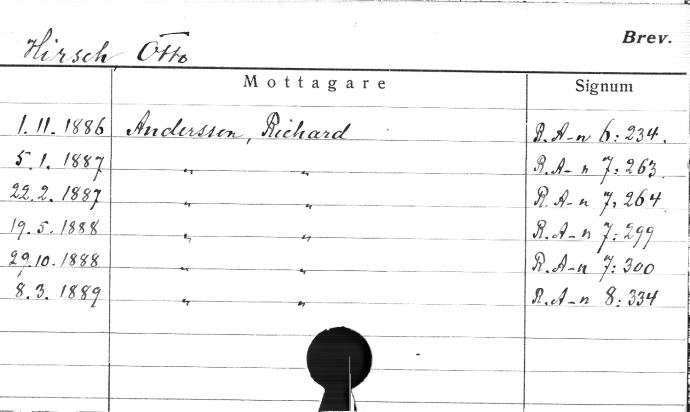 Brev.
Hirsch, Otto
Mottagare Signum
1.11.1886 Andersson, Richard R. A-n 6:234.
5.1.1887 " " R. A-n 7:263.
22.2.1887 " " R. A-n 7:264
19.5.1888 " " R. A-n 7:299
29.10.1888 " " R. A-n 7:300
8.3.1889 " " R. A-n 8:334